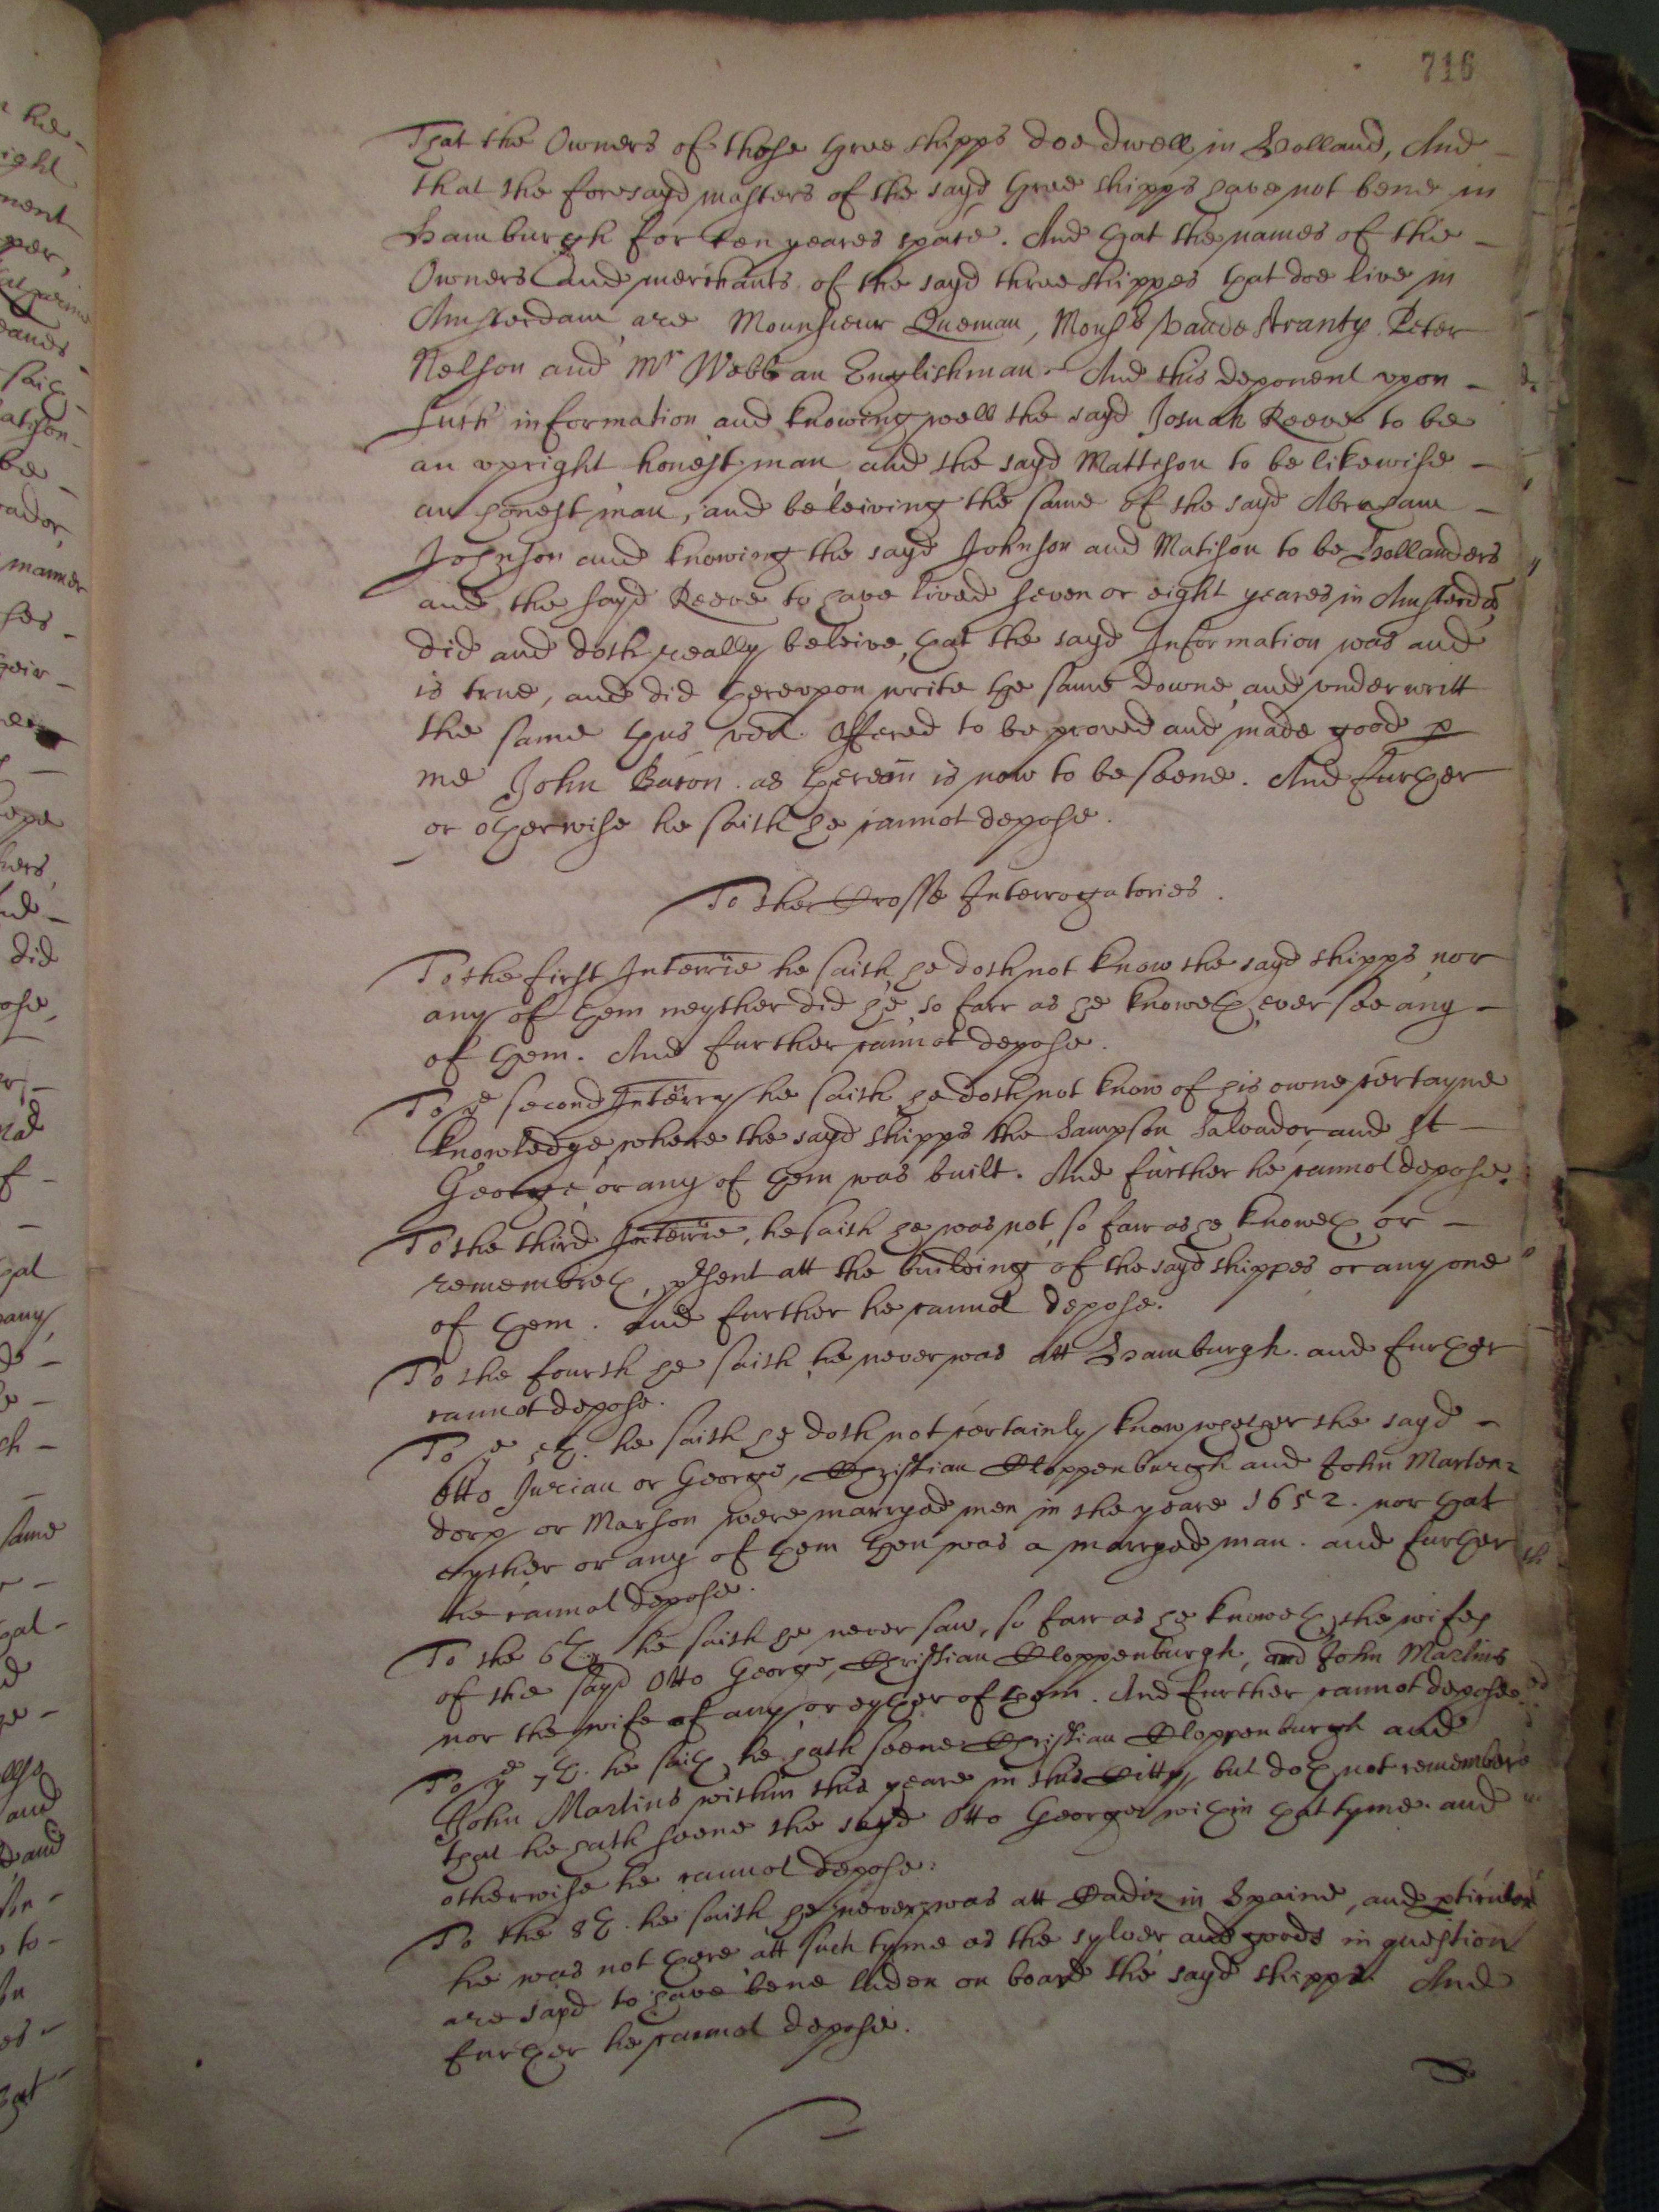 716
That the Owners of those three shipps doe dwell in Holland, And
that the foresayd masters of the sayd three shipps have not bene in
Hamburgh for ten yeares space. And that the names of the
Owners and merchants of the sayd three shippes that doe live in
Amsterdam are Mounsieur Queman, Monsr Vande Stranty Peter
Nelson and Mr Webb an Englishman. And this deponent vpon
such information and knowing well the sayd Josuah Reeve to be
an vpright honest man and the sayd Matteson to be likewise
an honest man, and beleiving the same of the sayd Abraham
Johnson and knowing the sayd Johnson and Matison to be Hollanders
and the sayd Reeve to have lived seven or eight yeares in Amsterdā
did and doth really beleive that the sayd Information was and
is true, and did therevpon write the same downe and vnderwritt
the same thus vizt. Offered to be proved and made good p
me John Bacon. as therein is now to be seene. And further
or otherwise he saith he cannot depose.
To the Crosse Interrogatories.
To the first Interrie he saith he doth not know the sayd shipps nor
any of them neyther did he so farr as he knoweth ever see any
of them. And further cannot depose.
To ye second Interry he saith he doth not know of his owne certayne
knowledge where the sayd shipps the Sampson Salvador and St
George or any of them was built. And further he cannot depose.
To the third Interrie, he saith he was not, so farr as he knoweth or
remembreth, psent att the building of the sayd shippes or any one
of them. And further he cannot depose.
To the fourth he saith he never was att Hamburgh. and further
cannot depose.
To ye 5th. he saith he doth not certainly know whether the sayd
Otto Jurian or George, Christian Cloppenburgh and John Marten=
dorp or Marson were marryed men in the yeare 1652. nor that
eyther or any of them then was a marryed man. and further
he cannot depose.
To the 6th he saith he never saw, so farr as he knoweth the wifes
of the sayd Otto George, Christian Cloppenburgh, and John Martins
nor the wife of any or eyther of them. And further cannot depose.
To ye 7th. he saith he hath seene Christian Cloppenburgh and
John Martins within this yeare in this Citty, but doth not remember
that he hath seene the sayd Otto George within that tyme. and
otherwise he cannot depose.
To the 8th. he saith he never was att Cadiz in Spaine, and pticular
he was not there att such tyme as the sylver and goods in question
are sayd to have bene laden on board the sayd shipps. And
further he cannot depose.